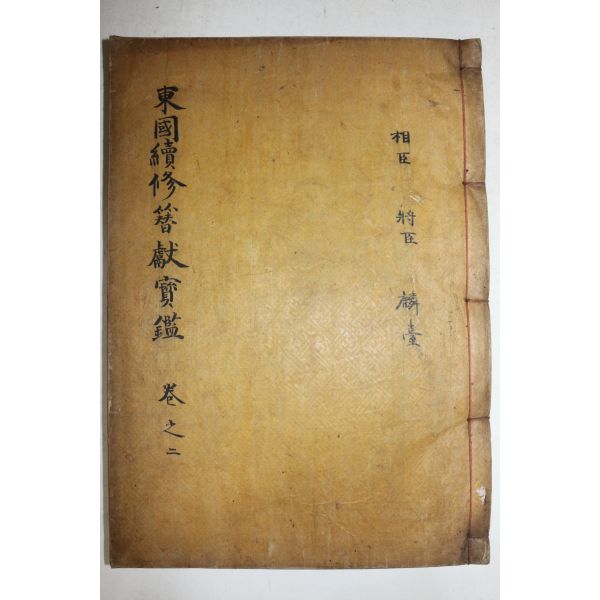 相臣 將臣 麟臺
東國續修簪獻寶鑑 卷之二